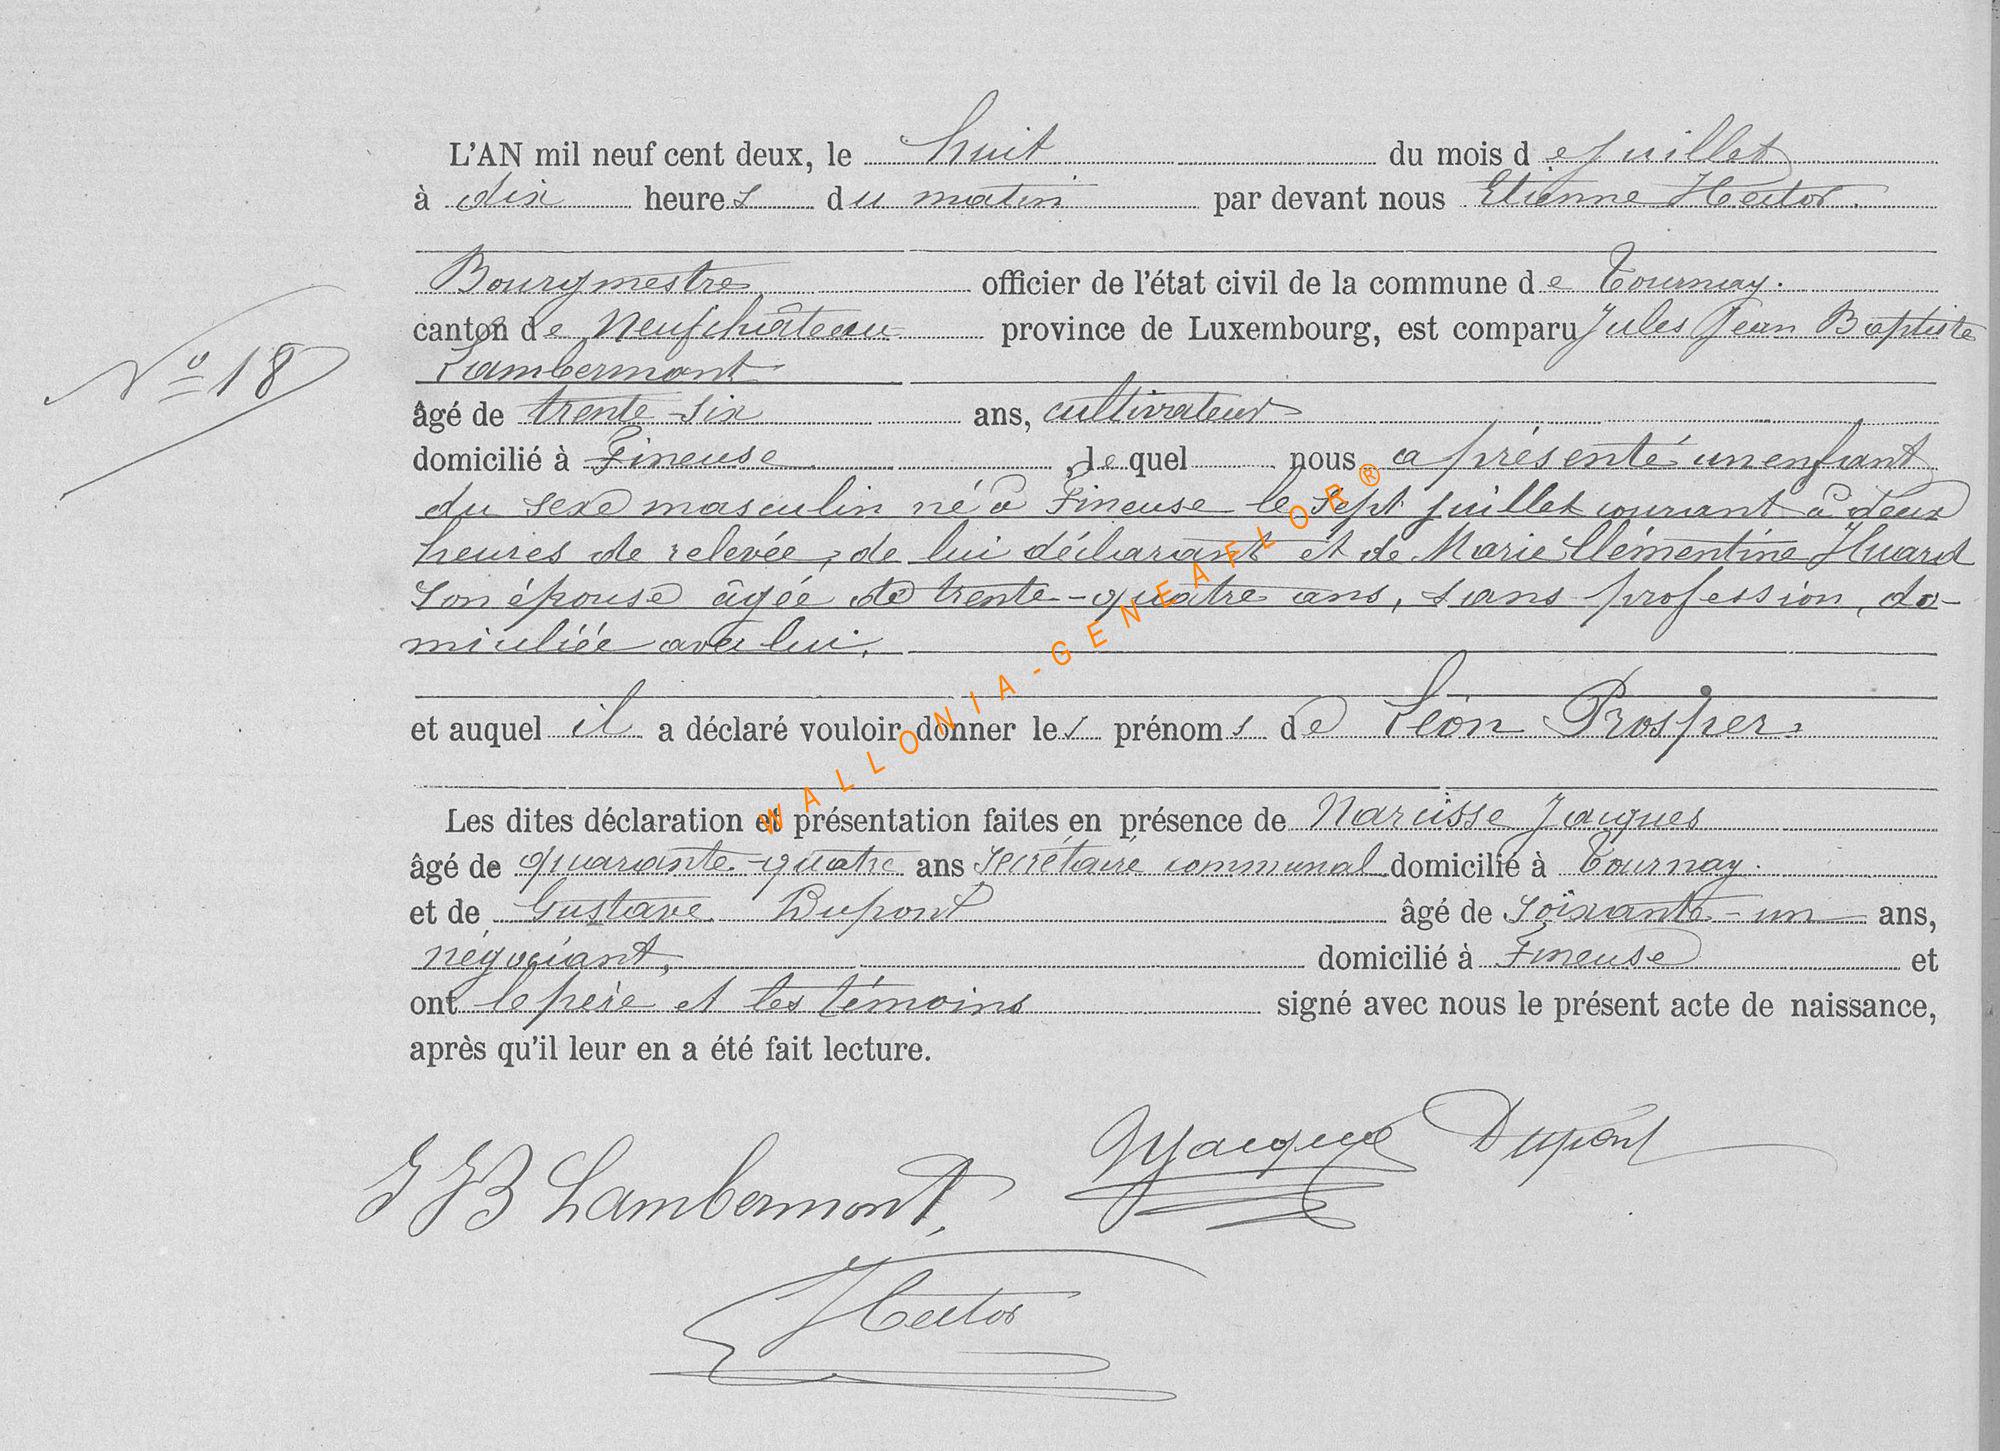 L'AN mil neuf cent deux, le huit du mois de juillet
à dix heures du matin par devant nous Etienne Hector.
Bourgmestre officier de l'état civil de la commune de Tournay.
canton de Neufchâteau province de Luxembourg, est comparu Jules Jean Baptiste
Lambermont
N° 18
âgé de trente-six ans, cultivateur
domicilié à Fineuse, lequel nous a présenté un enfant
du sexe masculin né à Fineuse le sept juillet courant à deux
heures de relevée, de lui déclarant et de Marie Clémentine Huard
son épouse âgée de trente-quatre ans, sans profession, do-
miciliée avec lui.
et auquel il a déclaré vouloir donner les prénoms de Léon Prosper.
Les dites déclaration et présentation faites en présence de Narcisse Jacques
âgé de quarante-quatre ans secrétaire communal domicilié à Tournay.
et de Gustave Dupont âgé de soixante-un ans,
négociant, domicilié à Fineuse et
ont le père et les témoins signé avec nous le présent acte de naissance,
après qu'il leur en a été fait lecture.
JJB Lambermont, NJacques Dupont
Hector
WALLONIA-GENEAFLOR®